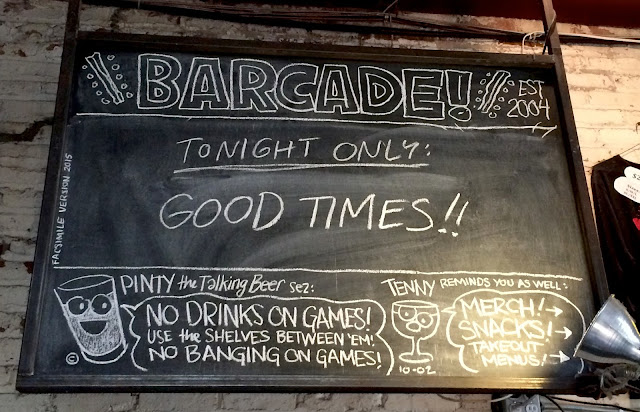 BARCADE!
EST
2004
TONIGHT ONLY:
GOOD TIMES!!
FACSIMILE VERSION 2015
PINTY the Talking Beer sez:
NO DRINKS ON GAMES!
USE the SHELVES BETWEEN 'EM!
NO BANGING ON GAMES!
©
TENNY REMINDS YOU AS WELL:
MERCH!→
SNACKS!→
TAKEOUT
MENUS!→
10-02